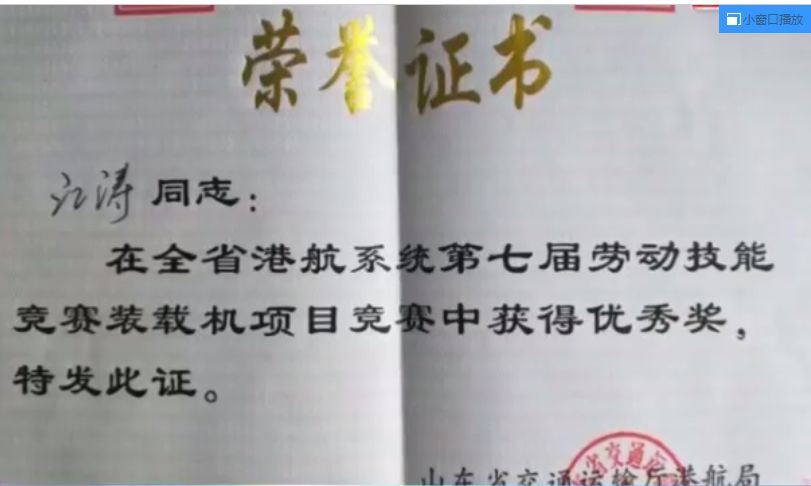 小窗口播放
荣誉证书
江涛同志：
在全省港航系统第七届劳动技能
竞赛装载机项目竞赛中获得优秀奖，
特发此证。
山东省交通运输厅港航局